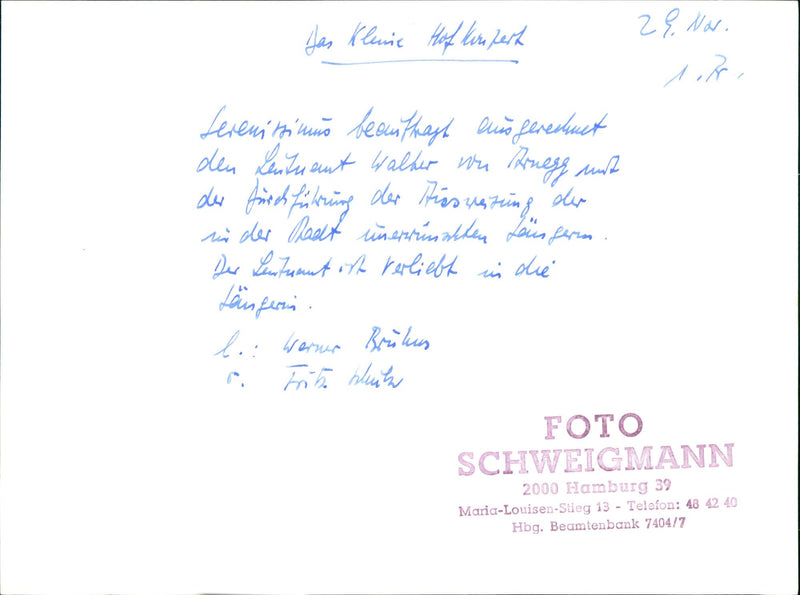 Das Kleine Hofkonzert
29. Nov.
1. Pr.
Serenissimus beauftragt ausgerechnet
den Leutnant Walter von Arnegg mit
der Durchführung der Ausweisung der
in der Stadt unerwünschten Sängerin.
Der Leutnant ist verliebt in die
Sängerin.
l.: Werner Bruhns
r. Fritz
FOTO
SCHWEIGMANN
2000 Hamburg 39
Maria-Louisen-Stieg 13 - Telefon: 48 42 40
Hbg. Beamtenbank 7404/7